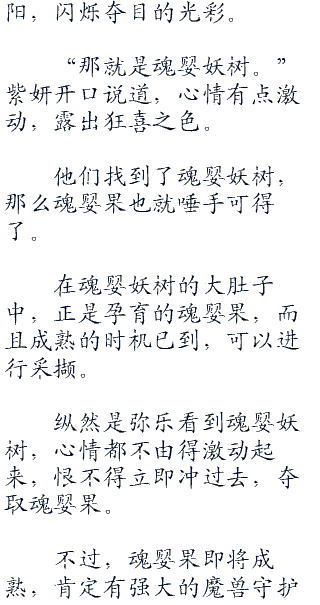 阳，闪烁夺目的光彩。
“那就是魂婴妖树。”
紫妍开口说道，心情有点激
动，露出狂喜之色。
他们找到了魂婴妖树，
那么魂婴果也就唾手可得
了。
在魂婴妖树的大肚子
中，正是孕育的魂婴果，而
且成熟的时机已到，可以进
行采撷。
纵然是弥乐看到魂婴妖
树，心情都不由得激动起
来，恨不得立即冲过去，夺
取魂婴果。
不过，魂婴果即将成
熟，肯定有强大的魔兽守护